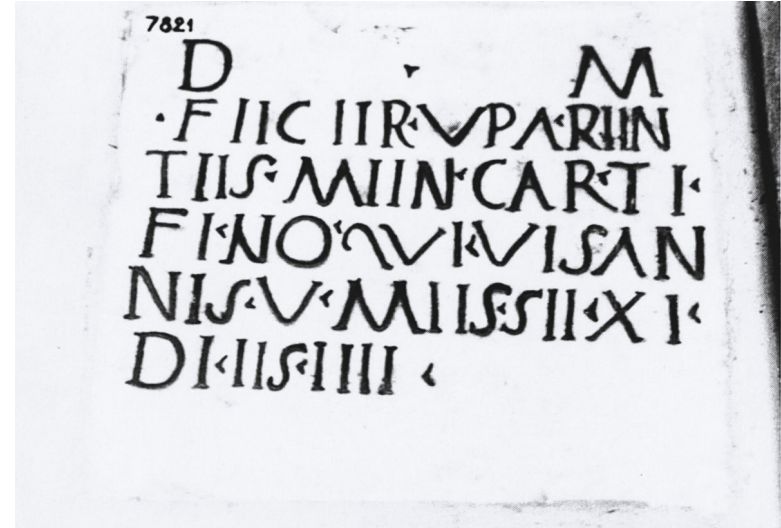 7821
D ▾ M
·FIICIIR·VPA·RIIN
TIIS·MIIN·CAR·TI·
FI·NO·QVI·VISAN
NIS·V·MIISSII·XI·
DI·IIS·IIII·